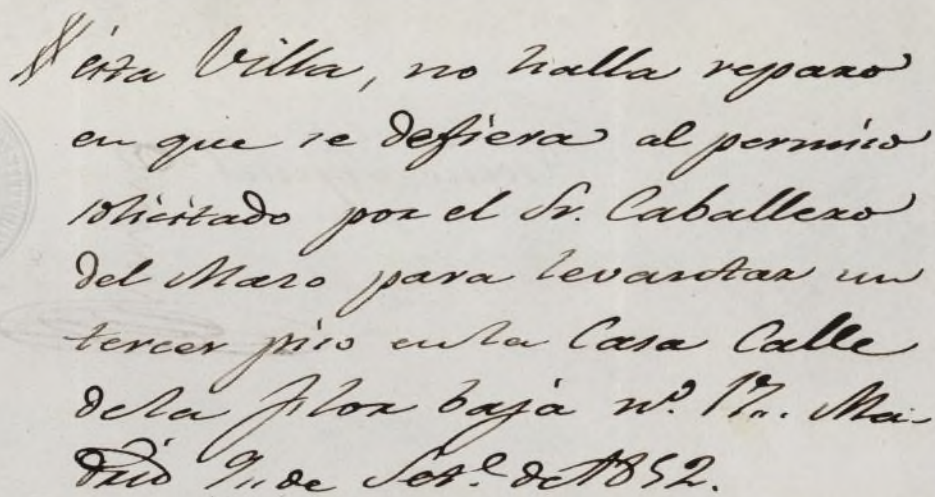 esta Villa, no halla reparo
en que se defiera al permiso
solicitado por el Sr. Caballero
del Mazo para levantar un
tercer piso en la Casa Calle
de la Flor baja nº. 17,,. Ma-
drid 9,, de Set.e de 1852.